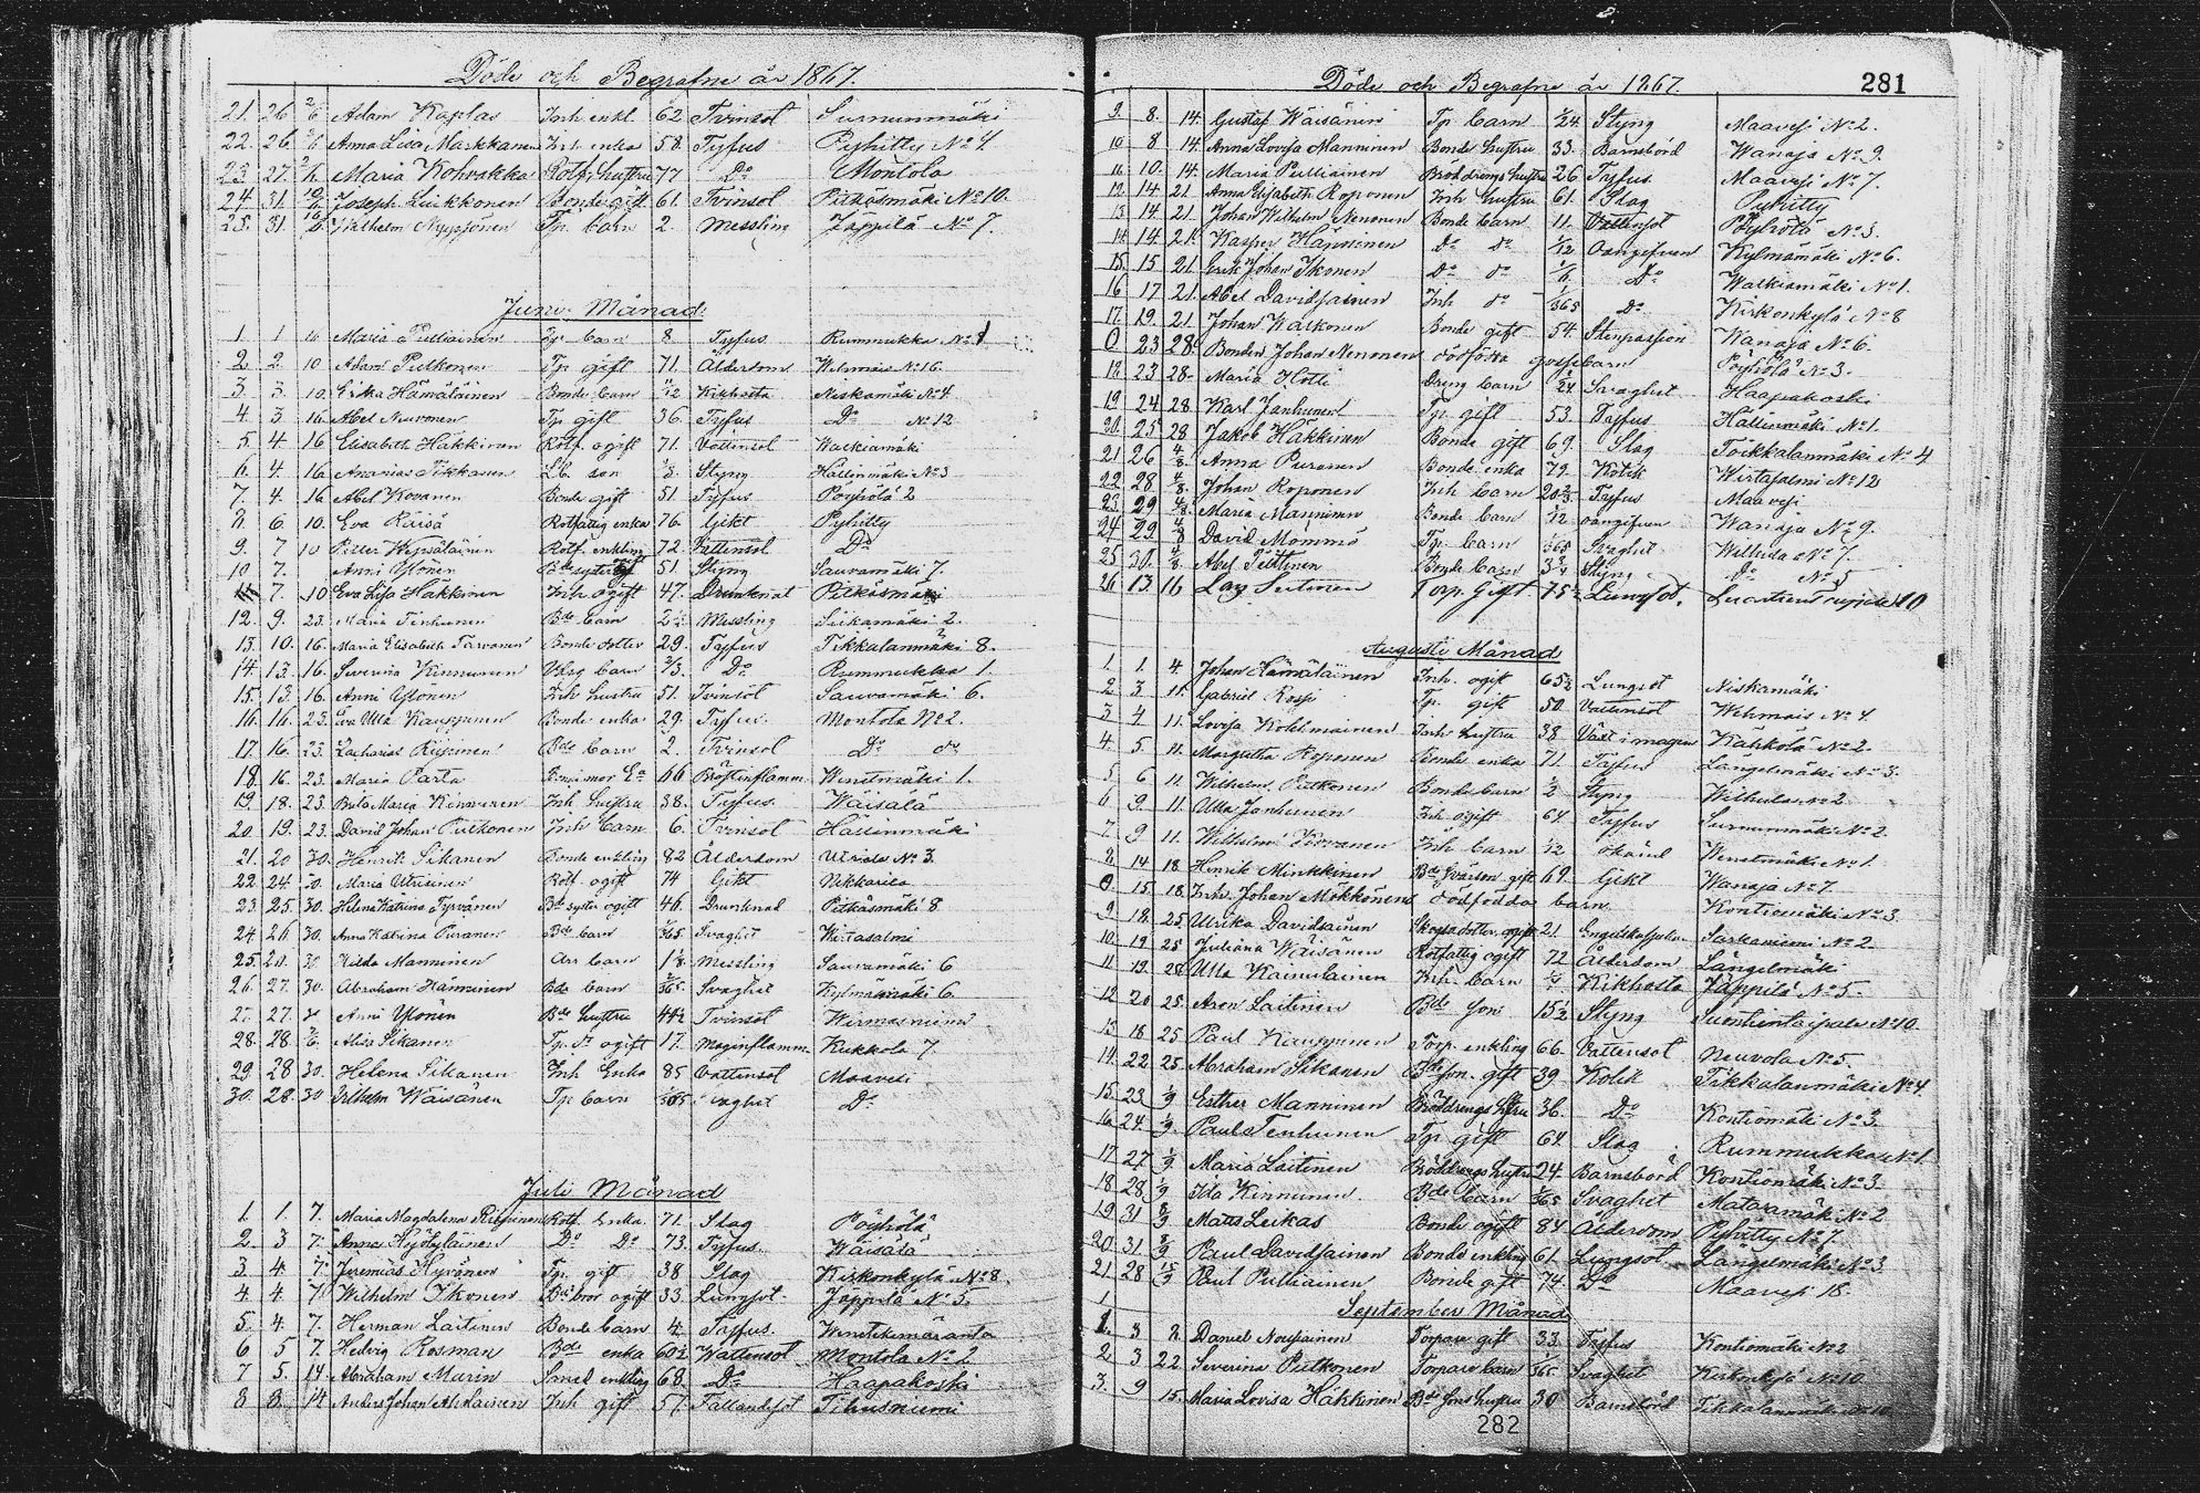 Döde och Begrafne år 1867.
21. 26 2/6 Adam Kaplas Inh enkl. 62 Tvinsot Surnunmäki
22. 26. 2/6 Anna Lisa Markkanen Inh enka 58. Tyfus Pyhitty No 4
23. 27. 2/6 Maria Kohvakka Rotf. hustru 77 Do Montola
24 31. 10/6 Joseph Luikkonen Bonde gift 61. Tvinsot Pitkäsmäki No 10.
25. 31. 16/6 Wilhelm Nyyssönen Tp. barn 2. Messling Jäppilä No 7.
Juni Månad
1 1 16 Maria Pulliainen Tp barn 8 Tyfus Rummukka No 1
2 2. 10 Adam Pulkonen Tp gift 71. Ålderdom Wehmais No 16.
3. 3. 10. Erika Hämäläinen Bonde barn 11/12 Kikhosta Niskamäki No 4
4 3 16. Abel Nuvonen Tp gift 36. Tyfus Do No 12
5. 4. 16 Elisabeth Häkkinen Rotf. ogift 71. Vattensot Walkiamäki
6. 4. 16 Ananias Tikkanen Lb. son Styng Hällinmäki No 3
7. 4. 16 Abel Kovanen Bonde gift 51. Tyfus Pöyhölä 2
8. 6. 10. Eva Räisä Rotfattig enka 76. Gikt Pyhitty
9. 7 10 Petter Wepsäläinen Rotf. enkling 72. Vattensot Do
10 7. Anni Ylönen Bde syster 51 Styng Sauvamäki 7.
11 7. 10 Eva Lisa Häkkinen Inh ogift 47. Drunknat Pitkäsmäki
12. 9. 23. Maria Tenhunen Bde barn 2 1/2 Messling Siikamäki 2.
13. 10. 16. Maria Elisabeth Tarvanen Bonde dotter 29. Tyfus Tikkalanmäki 8.
14. 13. 16. Severina Kinnunen barn 2/3. Do Rummukka 1.
15. 13. 16. Anni Ylönen Inh hustru 51. Tvinsot Sauvamäki 6.
16. 16. 23. Eva Ulla Kauppinen Bonde enka 29. Tyfus. Montola No 2.
17. 16. 23. Zacharias Riipinen Bde barn 2. Tvinsot Do do
18. 16. 23. Maria Parta mor Ea 66 Bröstinflamm. Wenetmäki 1.
19. 18. 23. Brita Maria Kinnunen Inh hustru 38. Tyfus. Wäisälä
20. 19. 23. David Johan Pulkonen Inh barn 6. Tvinsot Hällinmäki
21. 20 30. Henrik Sikanen Bonde enkling 82 Ålderdom Utriala No 3.
22. 24. 30. Maria Utriainen Rotf. ogift 74 Gikt Nikkarila
23. 25. 30. Helena Katrina Tyrvänen Bde syster ogift 46. Drunknad Pitkäsmäki 8
24. 26. 30. Anna Katrina Puranen Bde barn /365 Svaghet Wirtasalmi
25. 20. 30 Hilda Manninen Arr barn Messling Sauvamäki 6
26. 27. 30. Abraham Hänninen Bde barn /365. Svaghet Kylmämäki 6.
27. 27. 30 Anni Ylönen Bde hustru 44 1/2 Tvinsot Wirmasniemi
28. 28. Alisa Sikanen Tp. dr ogift 17. Maginflamm. Kukkola 7.
29 28 30. Helena Sikanen Inh Enka 85 Vattensot Maavesi
30. 28. 30 Wilhelm Wäisänen Tp barn /365 Svaghet Do
Juli Månad
1. 1. 7. Maria Magdalena Riipinen Rotf. Enka. 71. Slag Pöyhölä
2. 3 7. Anna Do Do 73. Tyfus. Wäisälä
3. 4. 7. Jeremias Hyvönen Tp. gift 38 Slag Kirkonkylä No 8.
4. 4. 7 Wilhelm Ikonen Bde bror ogift 33. Lungsot. Jäppilä No 5.
5. 4. 7. Herman Laitinen Bonde barn 4. Tyfus. Wenetekemäranta
6 5 7. Hedvig Rosman Bde enka 60 1/2 Wattensot Montola No 2
7 5. 14. Abraham Murin Smed enkling 68. Do Haapakoski
8 8. 14 Anders Johan Aholainen Inh gift 57. Fallandesot Tihusniemi
Döde och Begrafne år 1867.
281
9. 8. 14. Gustaf Wäisänen Tp barn /24 Styng Maavesi No 2.
10 8 14. Anna Lovisa Manninen Bonde hustru 33. Barnsbörd Wanaja No 9.
11. 10. 14. Maria Pulliainen Bröddrängs hustru 26 Tyfus. Maavesi No 7.
12. 14 21 Anna Elisabeth Roponen Inh hustru 61. Slag Pyhitty
13 14. 21. Johan Wilhelm Nenonen Bonde barn 11. Vattensot Pöyhölä No 3.
14. 14 21. Kasper Hänninen Do do 1/12 Oangifven Kylmämäki No 6.
15. 15 21. Erik Johan Ikonen Do do Do Walkiamäki No 1.
16 17 21. Abel Davidsainen Inh do 1/365 Do Kirkonkylä No 8
17. 19. 21. Johan Karkonen Bonde gift 54. Stenpassion Wanaja No 6.
0 23 28. Bonden Johan Nenonens dödfödda gossebarn Pöyhölä No 3.
18. 23 28. Maria Hotti Dreng barn /24 Svaghet Haapakoski
19 24 28 Karl Janhunen Tp. gift 53. Tyfus Hällinmäki No 1.
20. 25 28 Jakob Häkkinen Bonde gift 69. Slag Toikkalanmäki No 4
21 26 4/8 Anna Puranen Bonde enka 79. Kolik Wirtasalmi No 12
22 28 4/8. Johan Roponen Inh barn Tyfus Maavesi
23 29 4/8. Maria Manninen Bonde barn 1/12 oangifven Wanaja No 9.
24 29 4/8 David Mömmö Tp. barn /365 Svaghet Wilhula No 7.
25 30. 4/8. Abel Pöllänen Bonde barn Styng Do No 5
26 13. 16 Lars Sutinen Torp. Gift. Lungsot.
Augusti Månad
1. 1. 4. Johan Hämäläinen Inh. ogift 65 1/2 Lungsot Niskamäki
2 3 11. Gabriel Rossi Tp. gift 50. Vattensot Wehmais No 4.
3 4 11. Lovisa Kohlmainen Inh hustru 38 Växt i magen Kähkölä No 2.
4. 5. 11. Margretha Roponen Bonde enka 71. Tyfus Längelmäki No 3.
5 6 11. Wilhelm Pulkonen Bonde barn 1/2 Styng Wilhula No 2
6 9. 11. Ulla Janhunen Inh ogift 64. Tyfus Surnunmäki No 2.
7. 9 11. Wilhelm Kovanen Inh barn /12 okänd Wenetmäki No 1.
8 14 18 Henrik Minkkinen Bde Svärson gift 69. Gikt Wanaja No 7.
0. 15. 18. Inh. Johan Mökkönens dödfödda barn Kontiomäki No 3.
9 18. 25. Ulrika Davidsainen Skogvadotter ogift 21 Engelska sjukan Sarkaniemi No 2
10. 19 25 Juliana Wäisänen Rotfattig ogift 72 Ålderdom Längelmäki
11 19. 25 Ulla Kainulainen Inh. barn Kikhosta Jäppilä No 5.
12 20 25. Aron Laitinen Bde son 15 1/2 Styng Suontientaipale No 10.
13 18 25 Paul Kauppinen Torp. enkling 66. Vattensot Neuvola No 5.
14. 22 25. Abraham Sikanen Bde son. gift 39. Kolik Tikkalanmäki No 4.
15. 23 1/9 Esther Manninen Bröddrengs hustru 36. Do Kontiomäki No 3.
16. 24. 1/9. Paul Tenhunen Tp gift 64. Slag Rummukka No 1.
17. 27 1/9 Maria Laitinen Bröddrengs hustru 24. Barnsbörd Kontiomäki No 3
18 28 1/9 Ida Kinnunen. Bde barn /365 Svaghet Mataramäki No 2
19 31 8/9 Matts Leikas Bonde ogift 84 Ålderdom Pyhitty No 7.
20. 31. 8/9 Paul Davidsainen Bonde enkling 61. Lungsot Längelmäki No 3
21. 28 15/9 Paul Pulliainen Bonde gift 74. Do Maavesi 18.
September Månad
1. 3 8. Daniel Nousiainen Torpare gift 33. Tyfus Kontiomäki No 2
2 3 22. Severina Pulkonen Torpare barn /365. Svaghet Kirkonkylä No 10
3. 9 15. Maria Lovisa Häkkinen Bde sons hustru 30 Barnsbörd Tikkalanmäki No 10
282